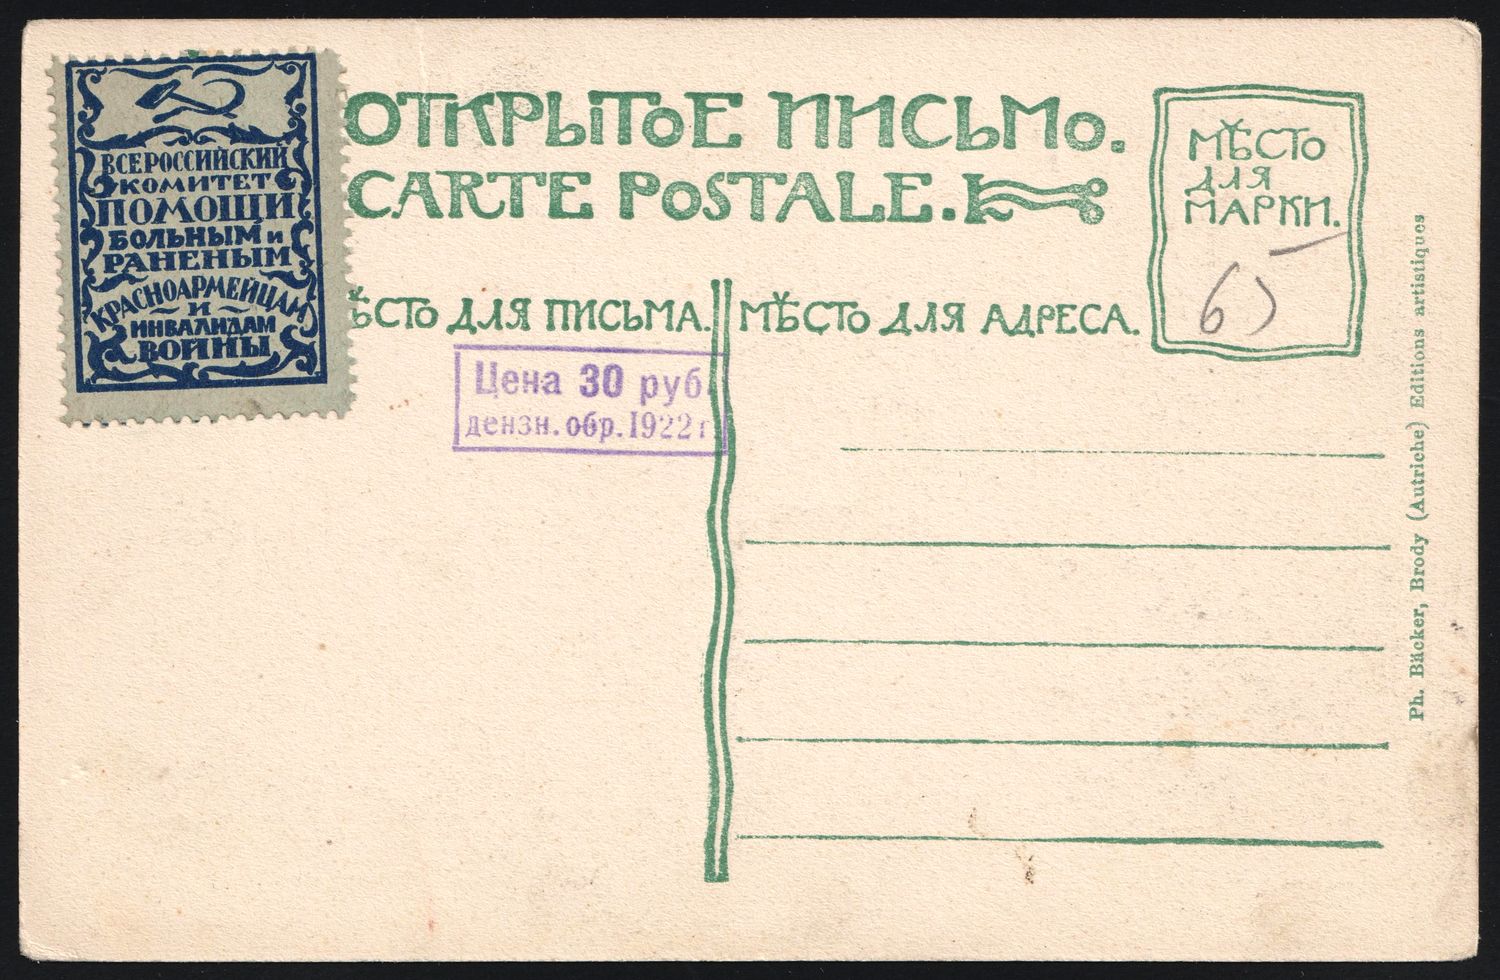 ВСЕРОССИЙСКИЙ
КОМИТЕТ
ПОМОЩИ
БОЛЬНЫМ и
РАНЕНЫМ
КРАСНОАРМЕЙЦАМ
И
ИНВАЛИДАМ
ВОЙНЫ
ОТКРЫТОЕ ПИСЬМО.
CARTE POSTALE.
МѢСТО
ДЛЯ
МАРКИ.
65
ѢСТО ДЛЯ ПИСЬМА.
МѢСТО ДЛЯ АДРЕСА.
Цена 30 руб.
дензн. обр. 1922 г.
Ph. Bäcker, Brody (Autriche) Editions artistiques